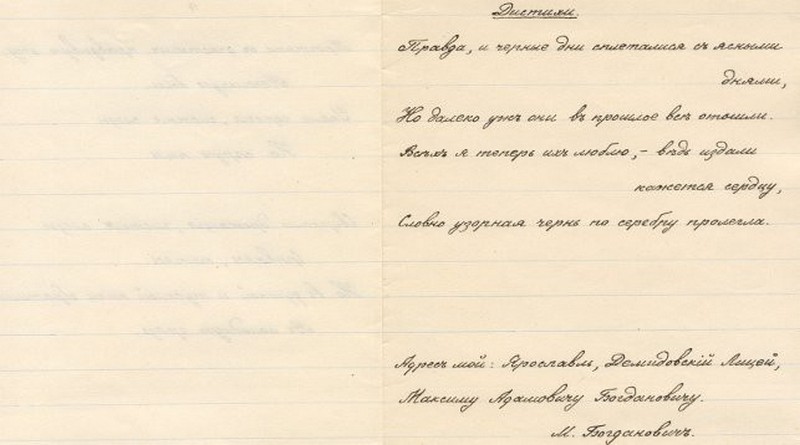 Дистихи.
Правда, и черные дни сплеталися съ ясными
днями,
Но далеко ужъ они въ прошлое всѣ отошли.
Всѣхъ я теперь ихъ люблю,- вѣдь издали
кажется сердцу,
Словно узорная чернь по серебру пролегла.
Адресъ мой: Ярославль, Демидовскій Лицей,
Максиму Адамовичу Богдановичу.
М. Богдановичъ.